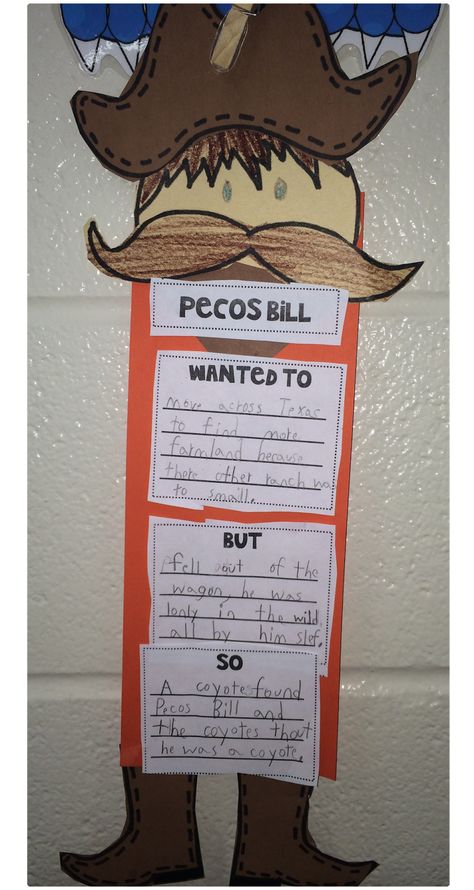 PECOS BILL
WANTED TO
move across Texac
to find more
farmland because
there other ranch wa
to small.
BUT
fell out of the
wagon, he was
lonly in the wild
all by him slef.
SO
A coyote found
Pecos Bill and
the coyotes thout
he was a coyote.